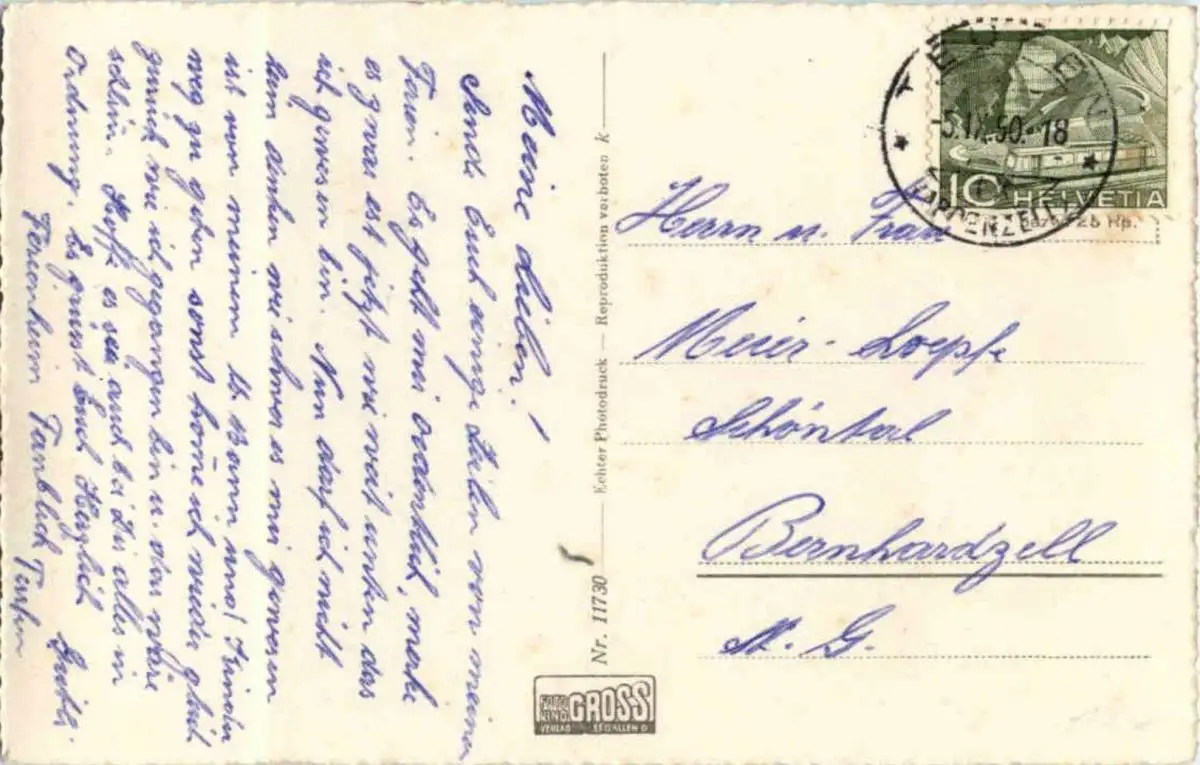 Meine lieben!
Sende Euch einige Zeilen von meinen
Ferien. Es geht mir ordentlich, merke
es zwar erst jetzt wie weit unten das
ich gewesen bin. Nun darf ich nicht
daran denken wie schwer es mir gewesen
ist von meinem lb. uns!
weg zu gehen sonst könnte ich wieder gleich
zurück wie ich gegangen bin u. das wäre
schlim. Hoffe es sei auch bei Dir alles in
Ordnung. Es grüsst Euch Herzlich
Ferienheim Teufen
Echter Photodruck — Reproduktion verboten k
Nr. 11730
FOTO KINO GROSS
VERLAG ST GALLEN O
TEUFEN
-5.IX.50.-18
(APPENZELL)
10 HELVETIA
25 Rp.
Herrn u. Frau
Meier-Loepfe
Schöntal
Bernhardzell
St. G.